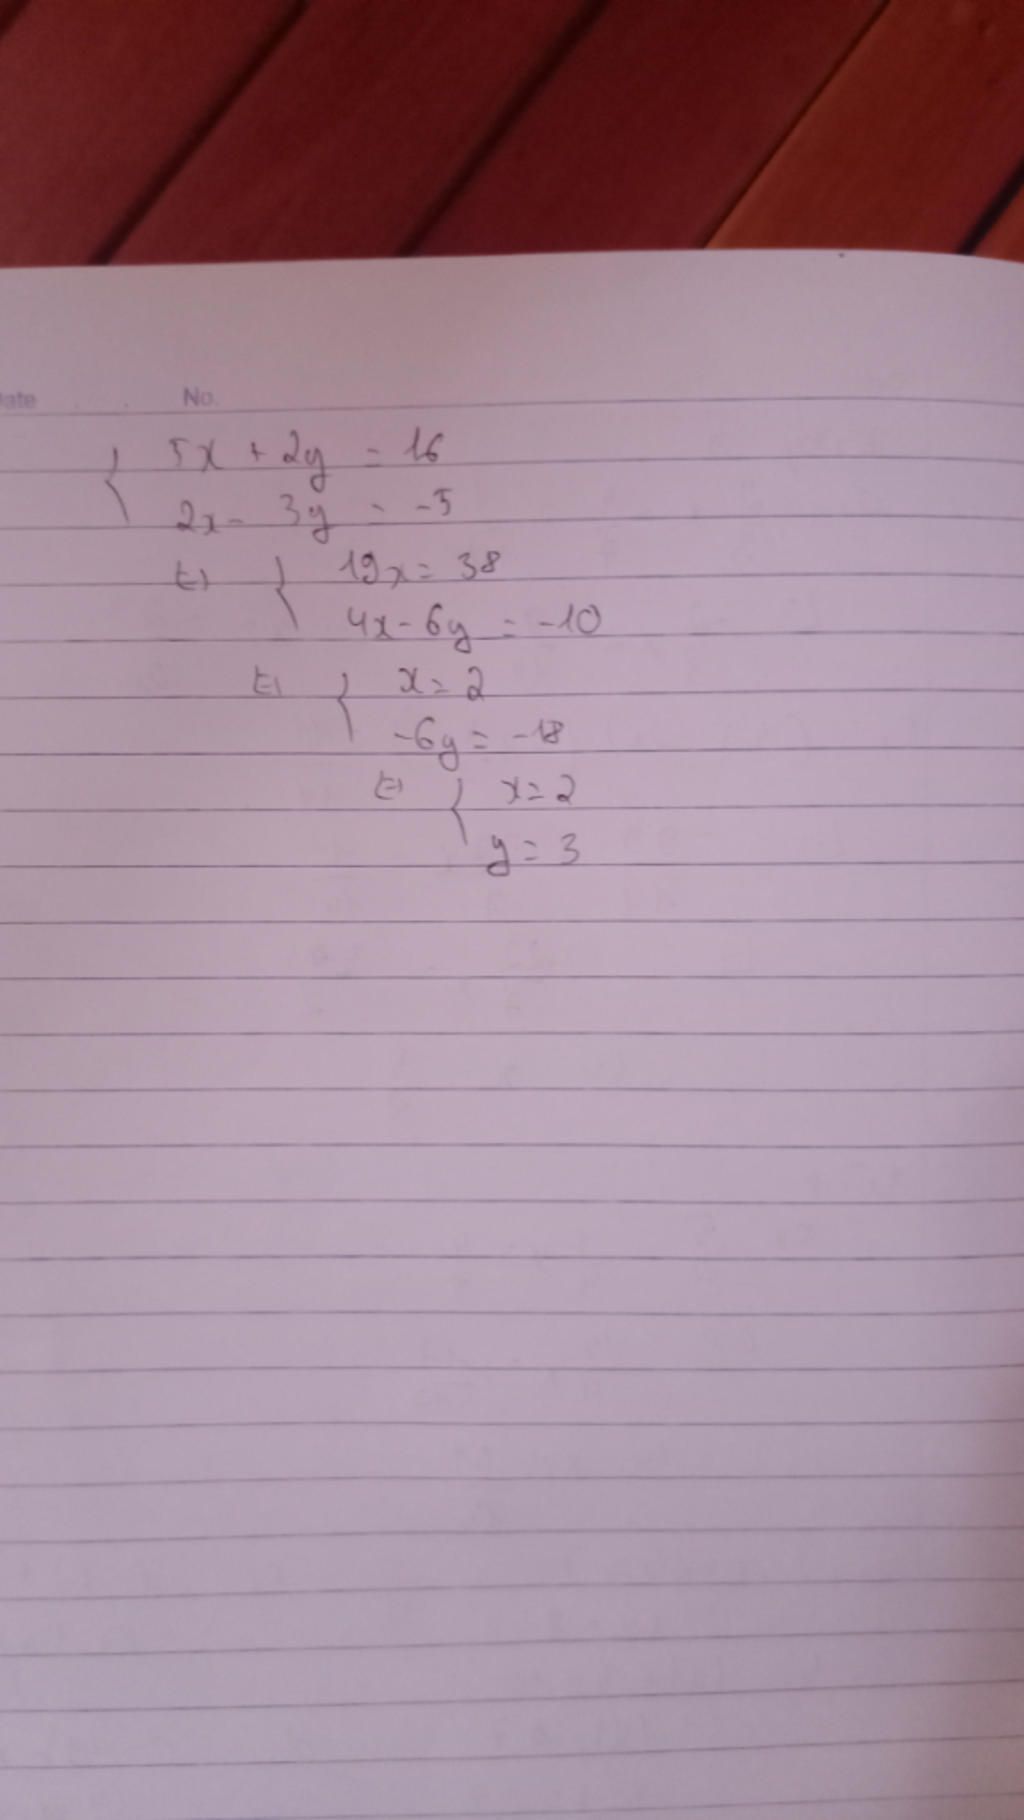 Date No.
5x + 2y = 16
2x - 3y = -5
⇔ { 19x = 38
4x - 6y = -10
⇔ { x = 2
-6y = -18
⇔ { x = 2
y = 3